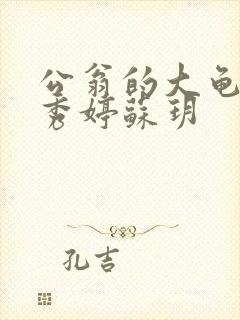 公翁的大龟
秀婷蘇玥
孔吉